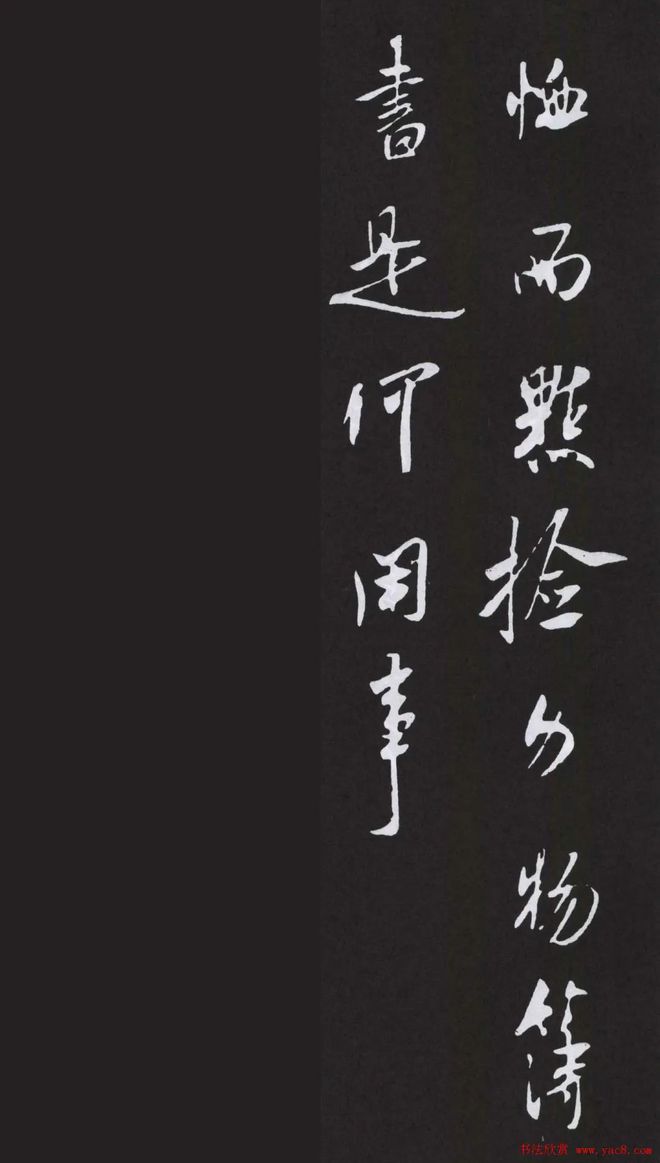 恤而點撿外物簿
書是何用事
书法欣赏 www.yac8.com